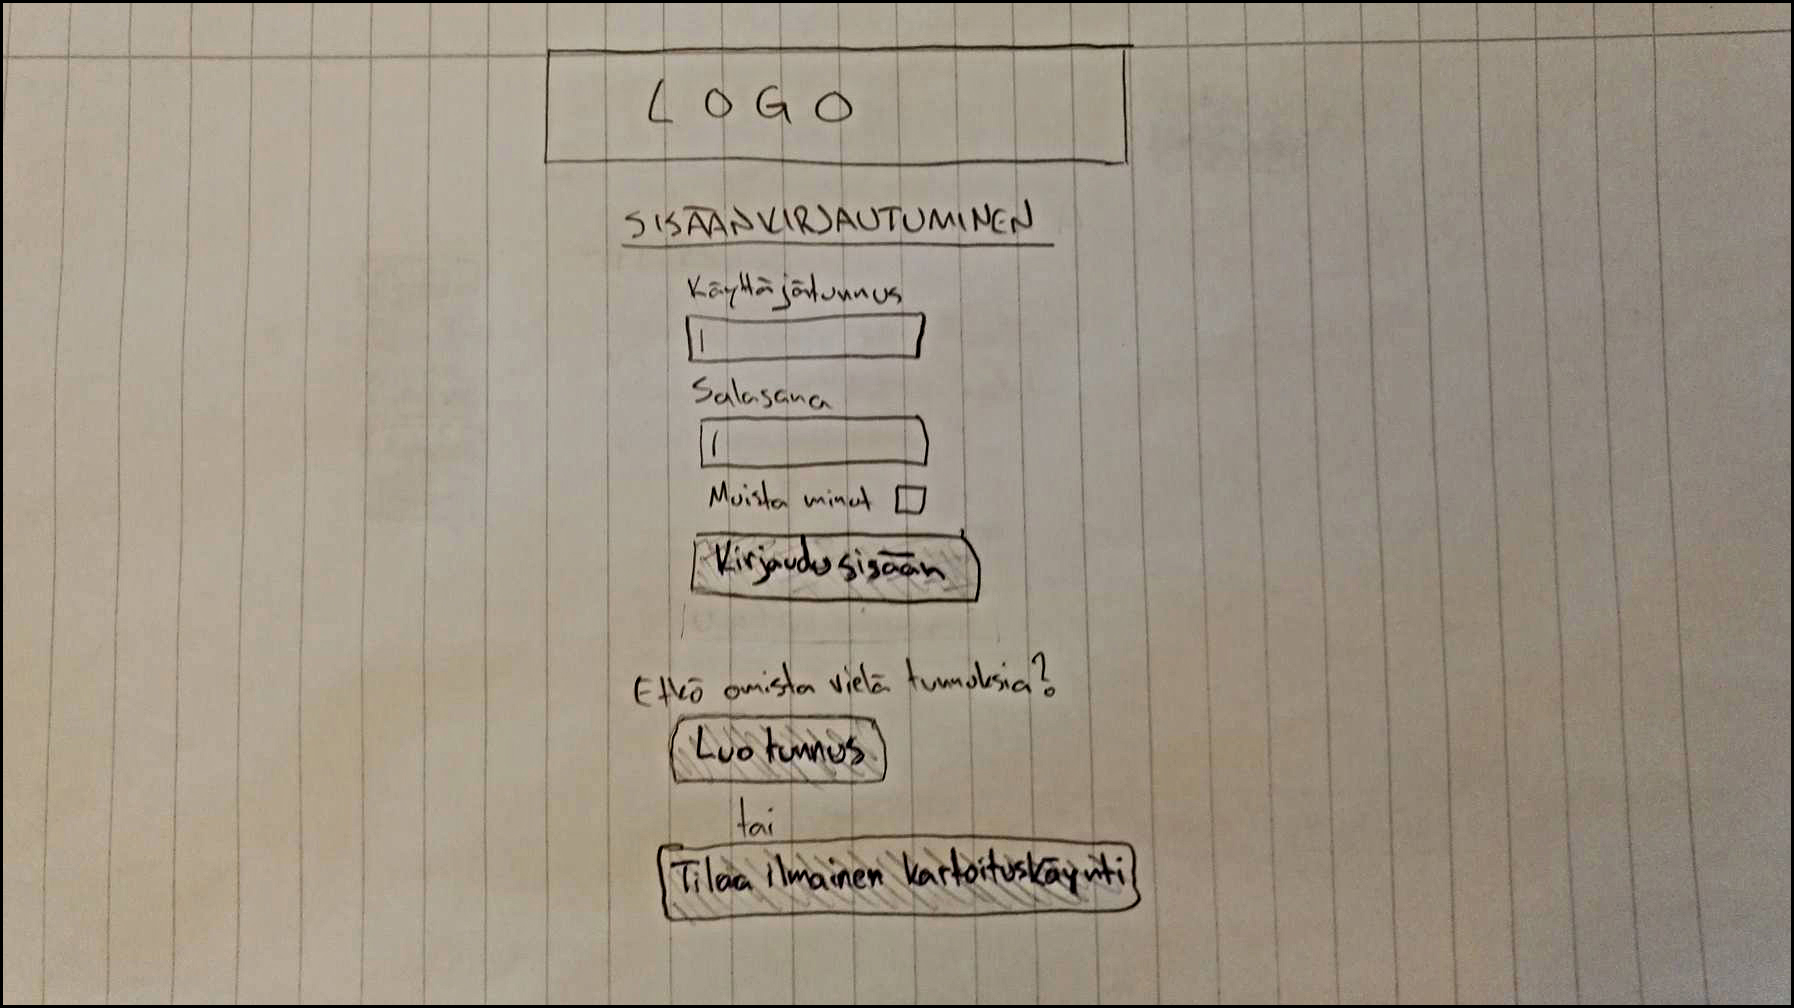 LOGO
SISÄÄNKIRJAUTUMINEN
Käyttäjätunnus
Salasana
Muista minut
Kirjaudu sisään
Etkö omista vielä tunnuksia?
Luo tunnus
tai
Tilaa ilmainen kartoituskäynti